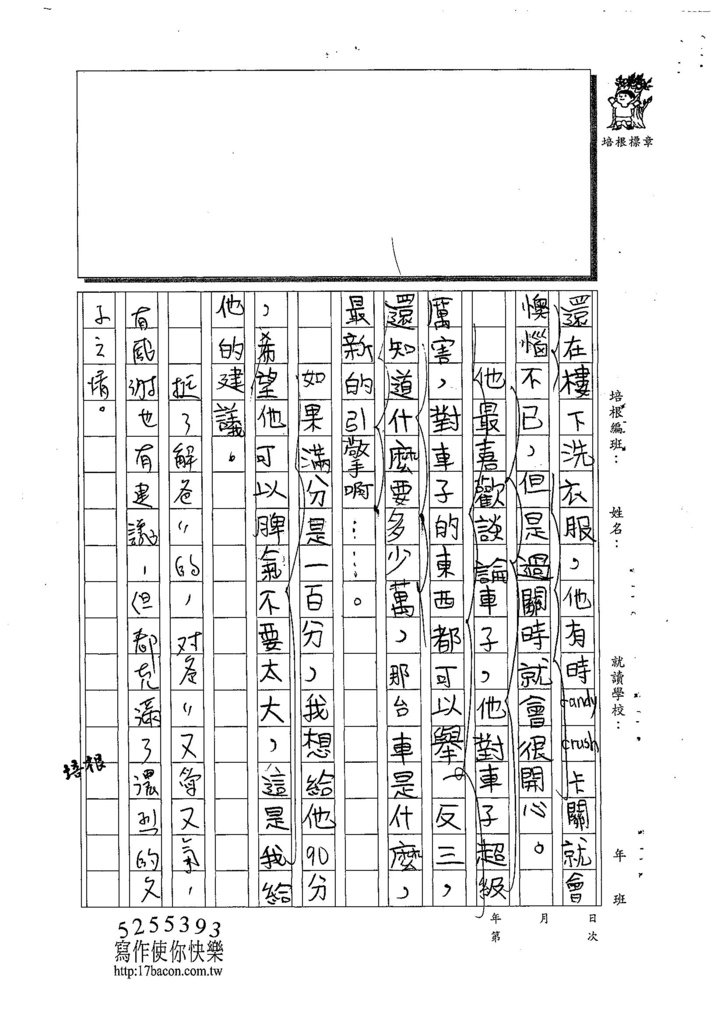 培根標章
培根編班：
姓名：
就讀學校：
年 班
年 月 日
第 次
還在樓下洗衣服，他有時candy crush卡關就會
懊惱不已，但是過關時就會很開心。
他最喜歡談論車子，他對車子超級
厲害，對車子的東西都可以舉一反三，
還知道什麼要多少萬，那台車是什麼，
最新的引擎啊……。
如果滿分是一百分，我想給他90分
，希望他可以脾氣不要太大，這是我給
他的建議。
挺了解爸〃的，对爸〃又愛又氣，
有感謝也有建議，但都充滿了濃烈的父
子之情。
培根
5255393
寫作使你快樂
http:17bacon.com.tw